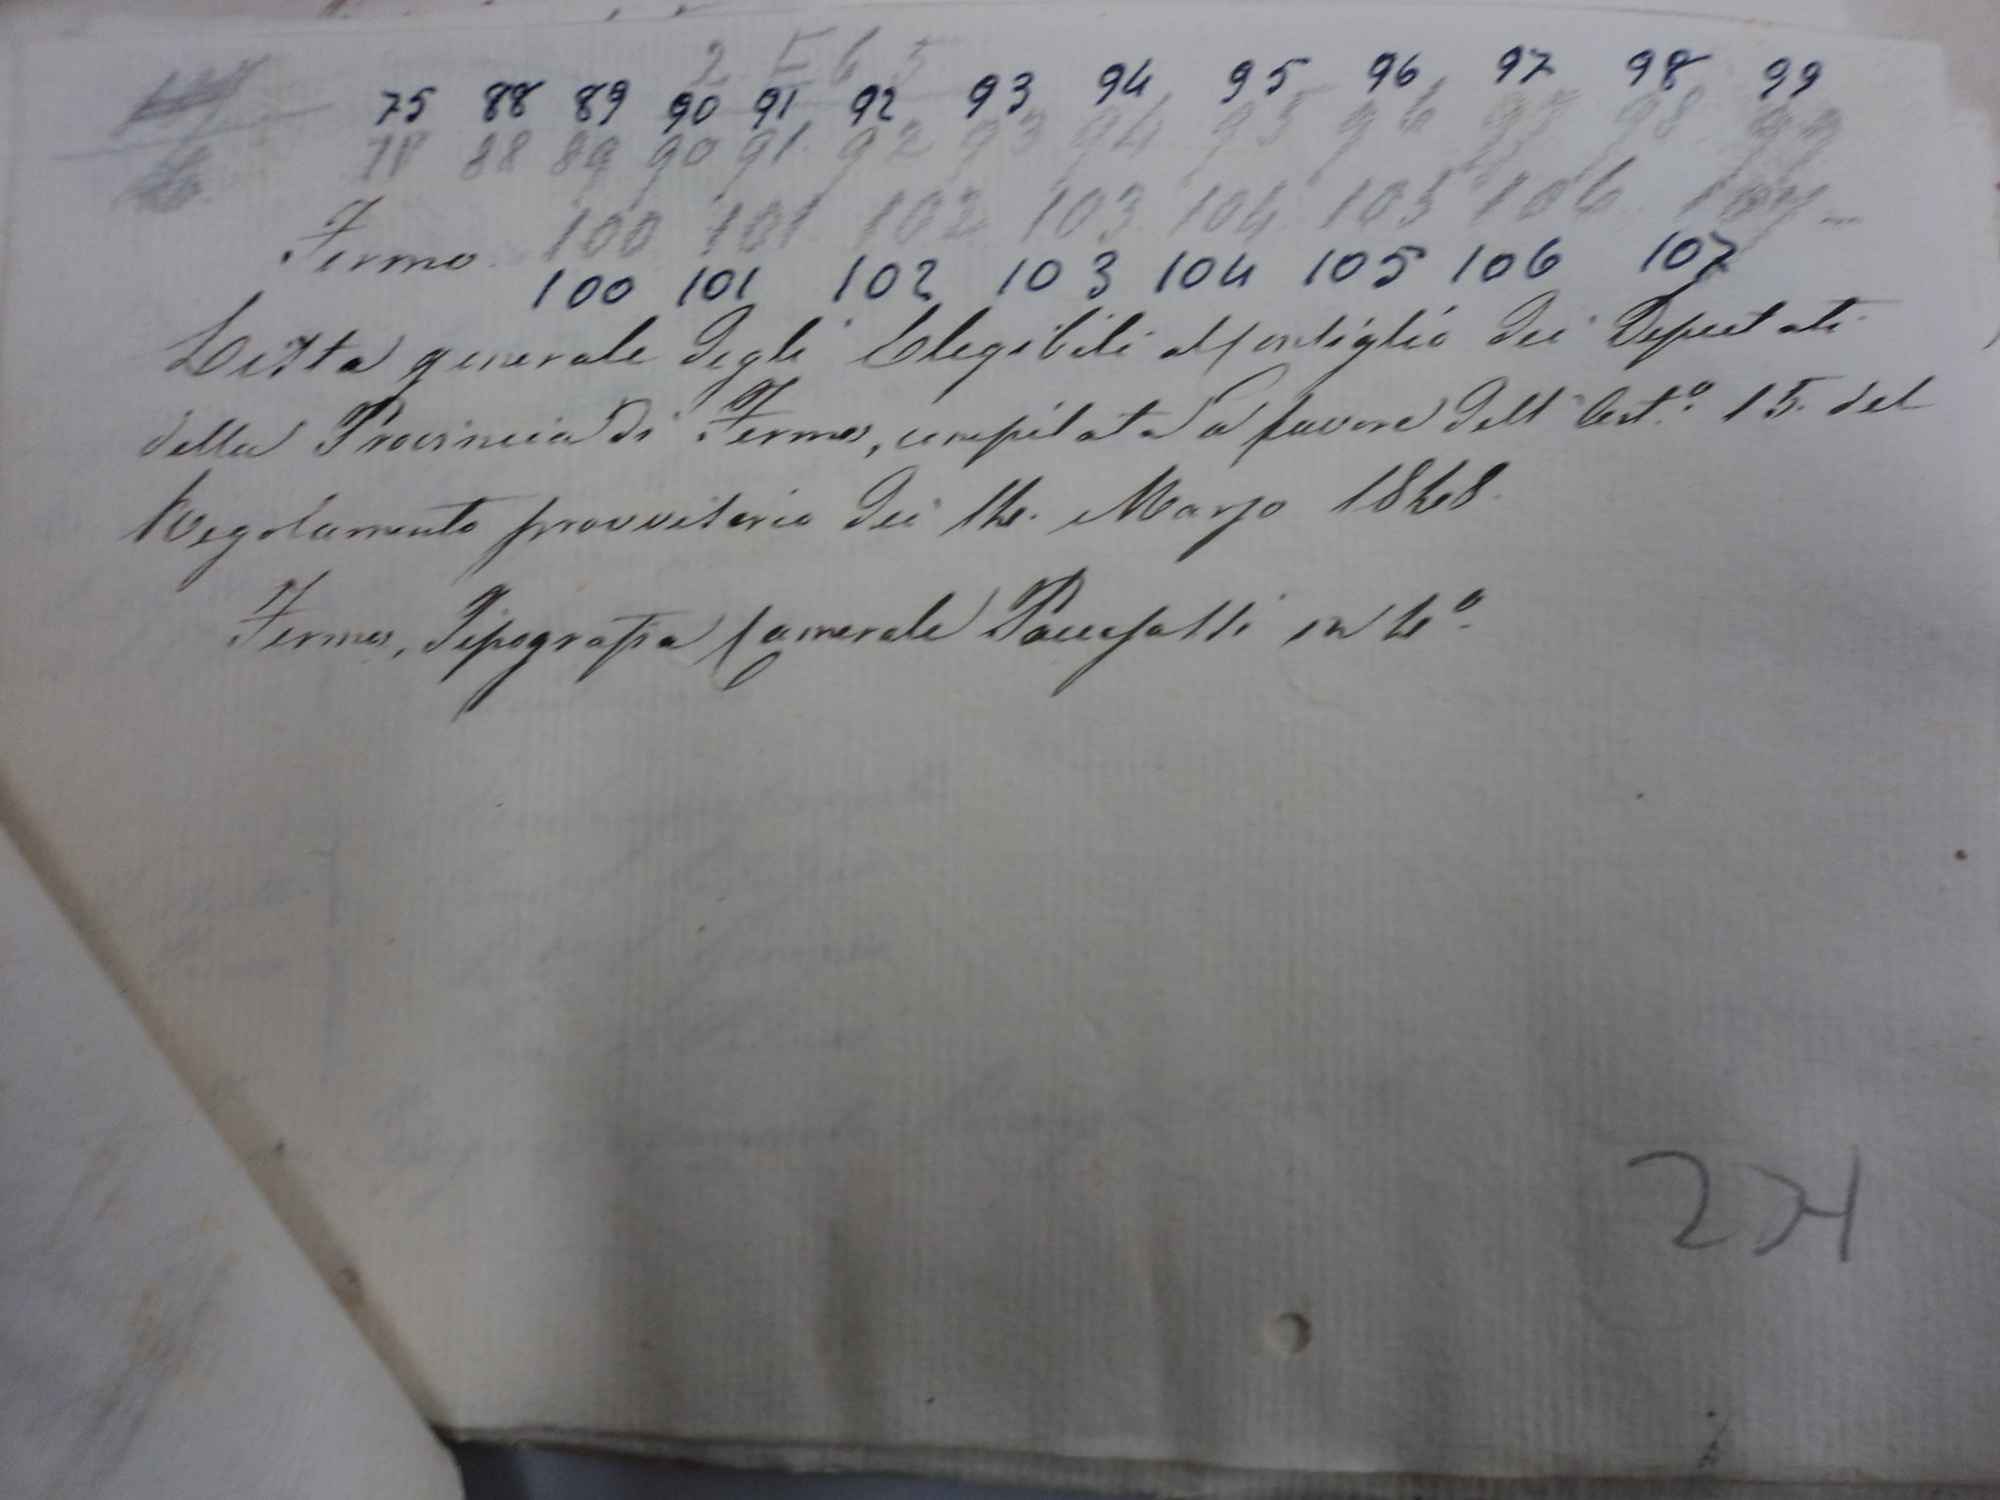 2 5 6 5
75 88 89 90 91 92 93 94 95 96 97 98 99
78 88 89 90 91 92 93 94 95 96 97 98 99
Fermo 100 101 102 103 104 105 106 107
100 101 102 103 104 105 106 107
Lista generale degli Elegibili al Consiglio dei Deputati
della Provincia di Fermo, compilata a favore dell' Art.º 15. del
Regolamento provvisorio dei 14. Marzo 1848.
Fermo, Tipografia Camerale Paccasassi in 4º.